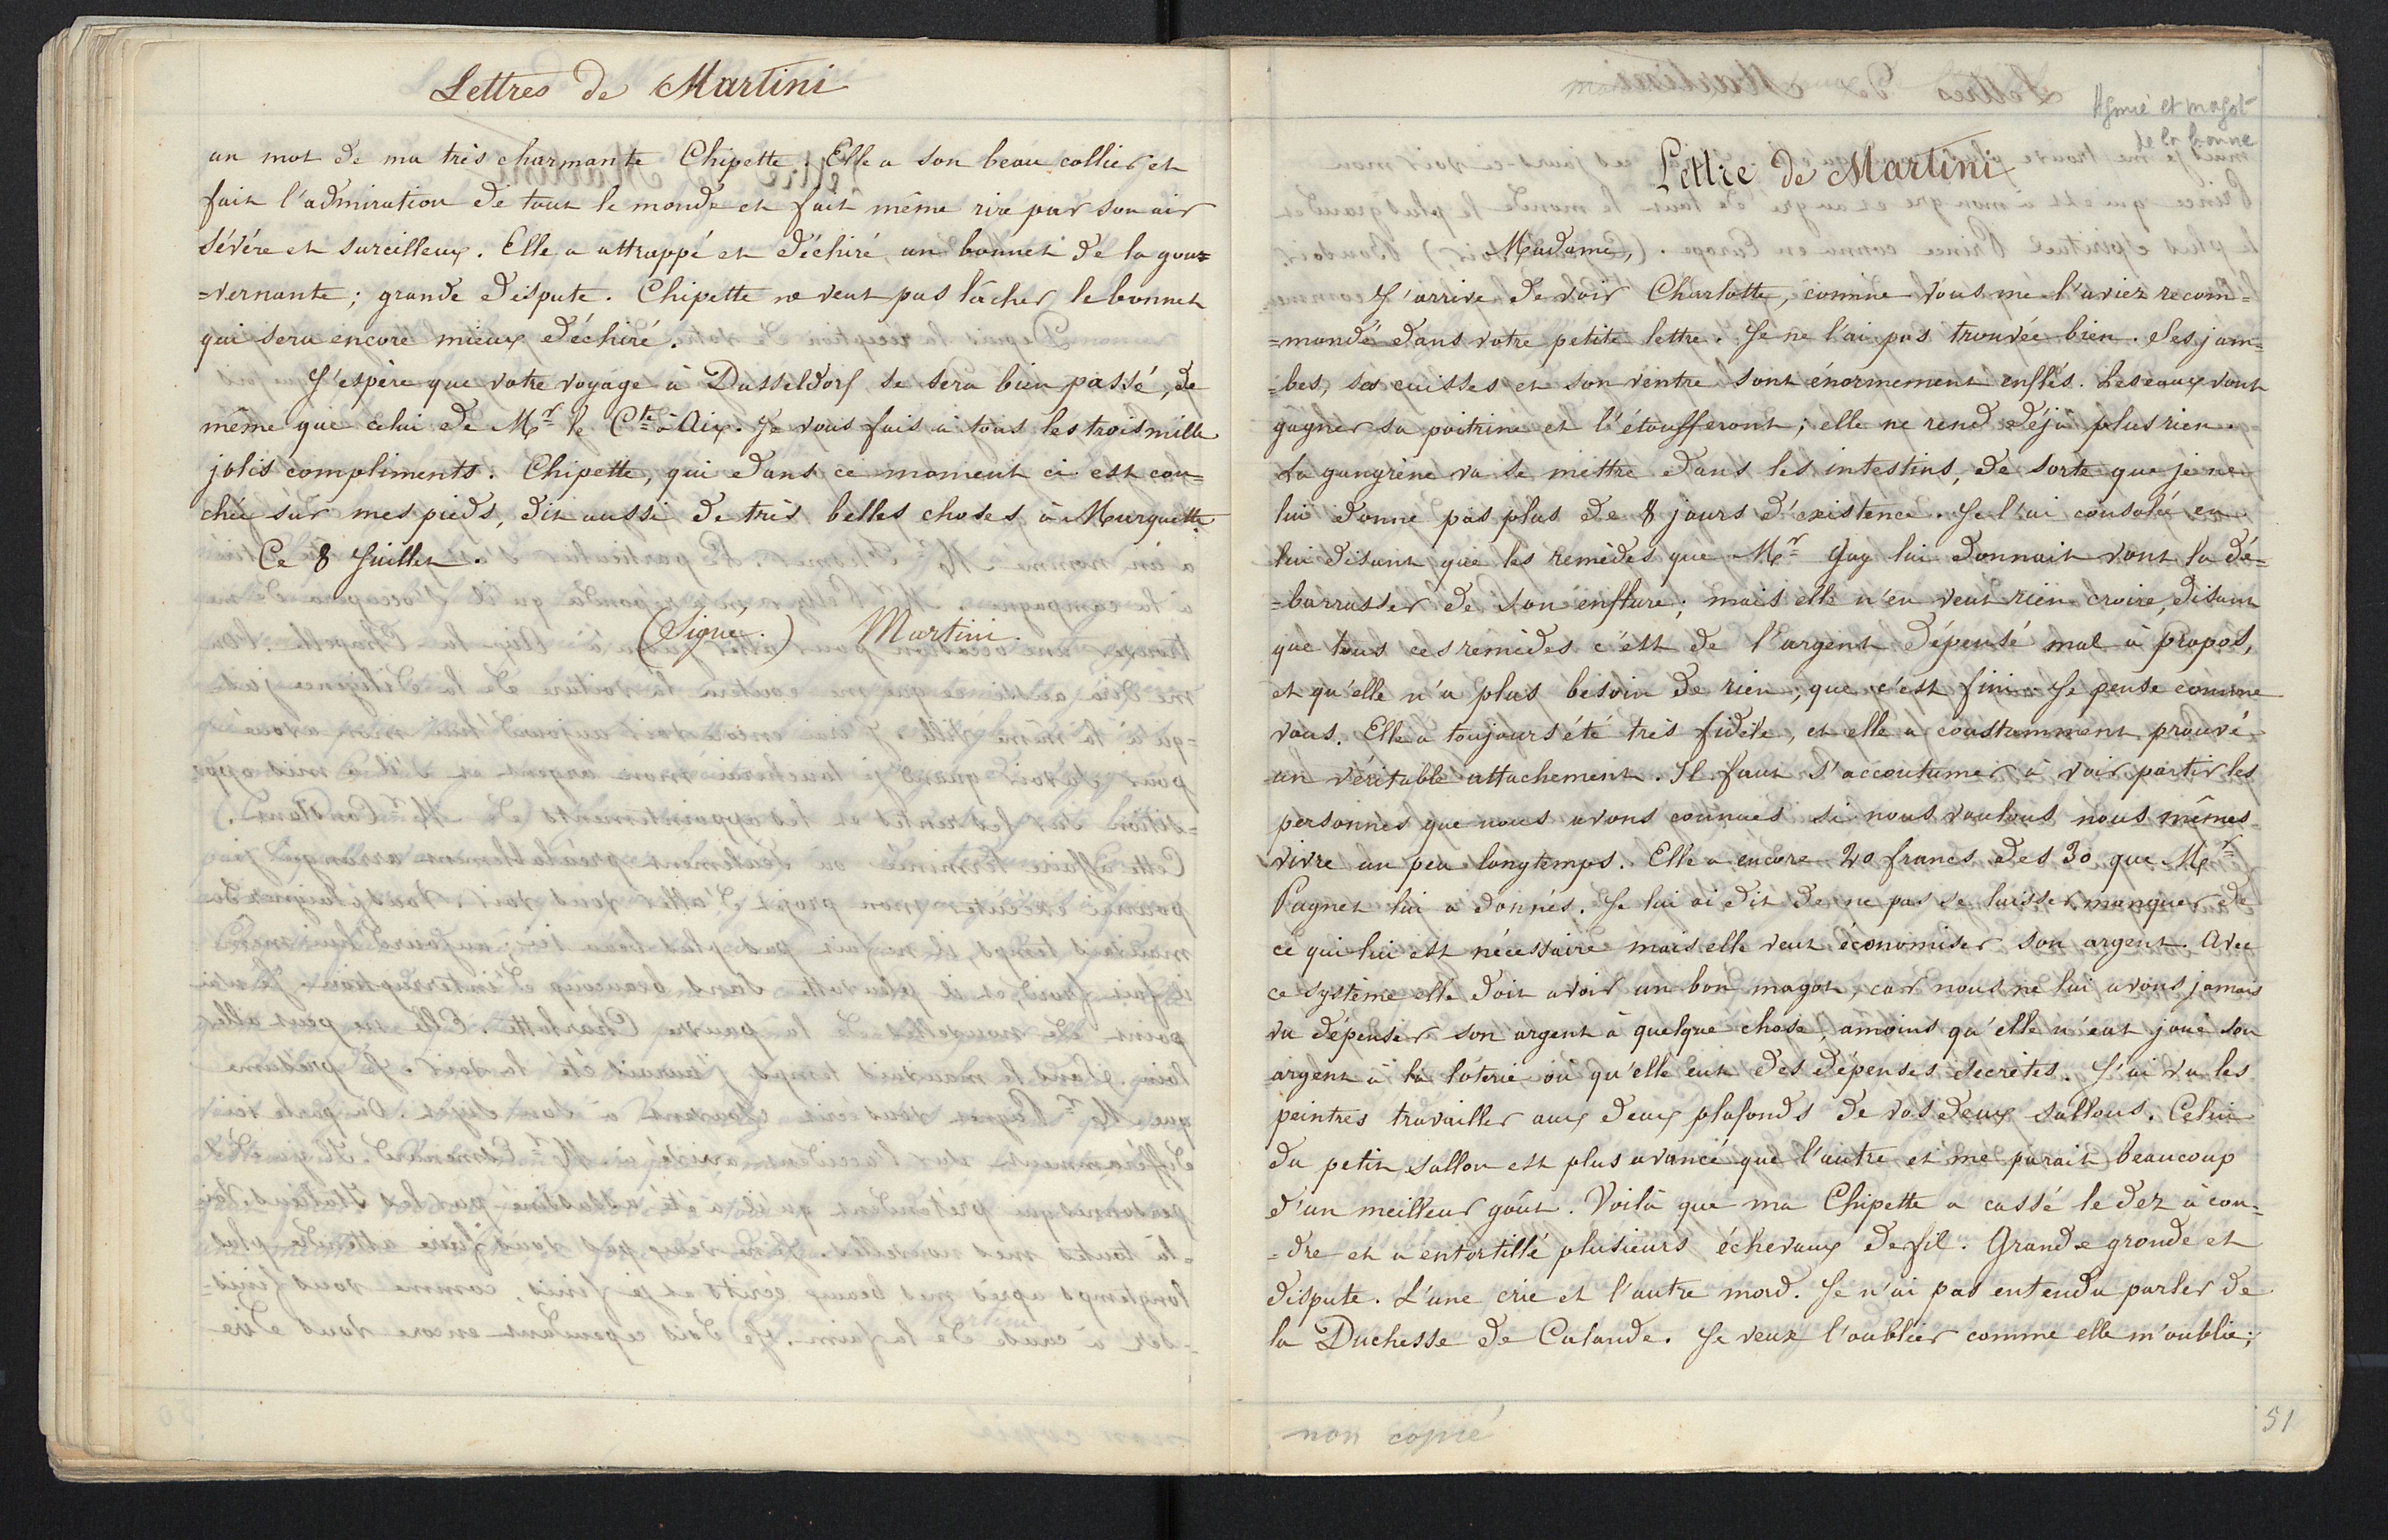 Lettres de Martini
un mot de ma très charmante Chipette. Elle a son beau collier et
fait l'admiration de tout le monde et fait même rire par son air
sévére et surcilleux. Elle a attrappé et déchiré un bonnet de la gou=
=vernante; grande dispute. Chipette ne veut pas lâcher le bonnet
qui sera encore mieux déchiré.
J'espère que votre voyage à Dusseldorf se sera bien passé, de
même que celui de Mr le Cte à Aix. Je vous fais à tous les trois mille
jolis compliments. Chipette, qui dans ce moment ci est cou=
chée sur mes pieds, dit aussi de très belles choses à Murquette.
Ce 8 Juillet.
(Signé.) Martini.
Agonie et magot
de la bonne
Lettre de Martini
Madame,
J'arrive de voir Charlotte, comme vous me l'aviez recom=
=mandé dans votre petite lettre. Je ne l'ai pas trouvée bien. Ses jam=
=bes, ses cuisses et son ventre sont énormement enflés. Les eaux vont
gagner sa poitrine et l'étoufferont; elle ne rend déjà plus rien.
La gangrène va se mettre dans les intestins, de sorte que je ne
lui donne pas plus de 8 jours d'existence. Je l'ai consolée en
lui disant que les remèdes que Mr Guy lui donnait vont la dé=
=barrasser de son enflure; mais elle n'en veut rien croire, disant
que tous ces remèdes c'est de l'argent dépensé mal à propos,
et qu'elle n'a plus besoin de rien; que c'est fini. Je pense comme
vous. Elle a toujours été très fidèle, et elle a constamment prouvé
un véritable attachement. Il faut s'accoutumer à voir partir les
personnes que nous avons connues si nous voulons nous mêmes
vivre un peu longtemps. Elle a encore 20 francs des 30 que Mr
Pagnet lui a donnés. Je lui ai dit de ne pas se laisser manquer de
ce qui lui est nécessaire mais elle veut économiser son argent. Avec
ce système elle doit avoir un bon magot, car nous ne lui avons jamais
vu dépenser son argent à quelque chose, àmoins qu'elle n'eut joué son
argent à la loterie où qu'elle eut des dépenses secrètes. J'ai vu les
peintres travailler aux deux plafonds de vos deux sallons. Celui
du petit sallon est plus avancé que l'autre et me parait beaucoup
d'un meilleur goût. Voilà que ma Chipette a cassé le dez à cou=
=dre et a entortillé plusieurs échevaux de fil. Grande gronde et
dispute. L'une crie et l'autre mord. Je n'ai pas entendu parler de
la Duchesse de Calande. Je veux l'oublier comme elle m'oublie;
non copié
51